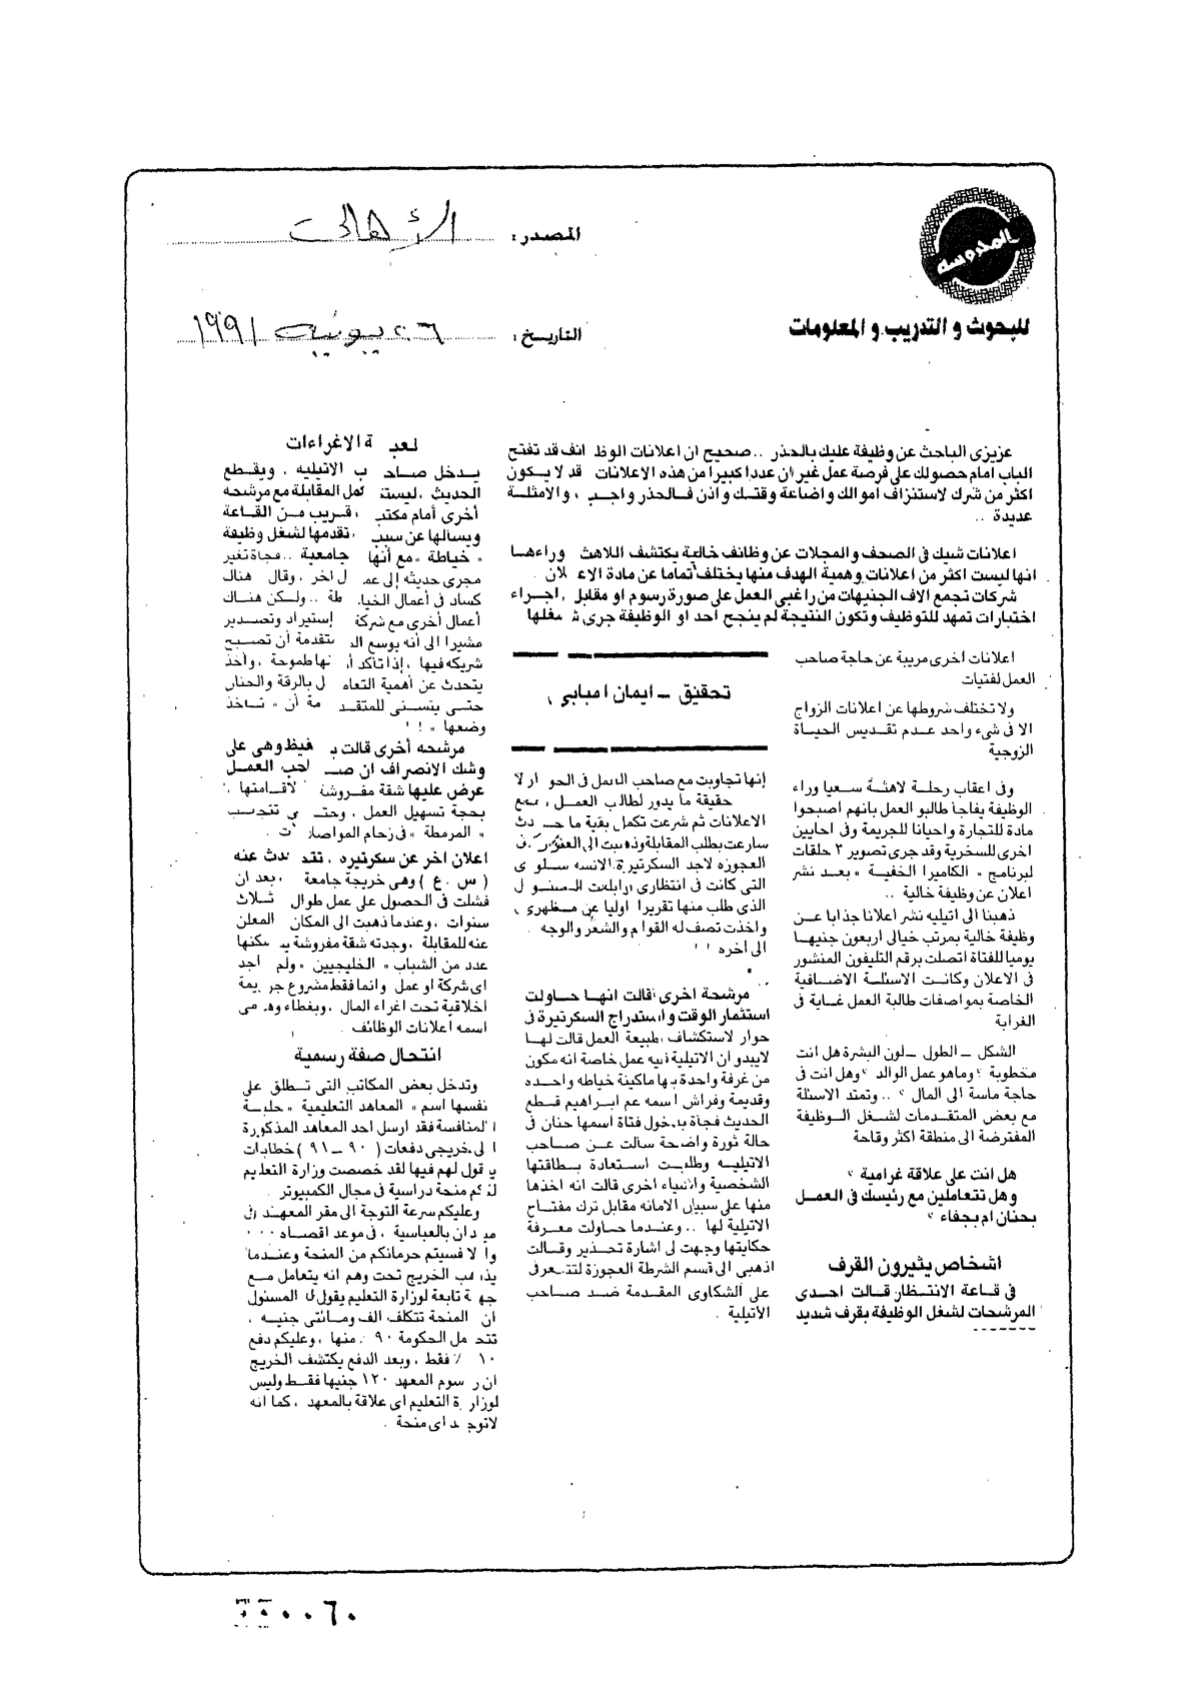 المحروسه
للبحوث و التدريب و المعلومات
المصدر : الأهالى
التاريخ : ٢٦ يونيه ١٩٩١
عزيزى الباحث عن وظيفة عليك بالحذر .. صحيح ان اعلانات الوظائف قد تفتح
الباب امام حصولك على فرصة عمل غير ان عددا كبيرا من هذه الاعلانات قد لا يكون
اكثر من شرك لاستنزاف اموالك واضاعة وقتك واذن فالحذر واجب ، والامثلة
عديدة ..
اعلانات شيك فى الصحف والمجلات عن وظائف خالية يكتشف اللاهث وراءها
انها ليست اكثر من اعلانات وهمية الهدف منها يختلف تماما عن مادة الاعلان
شركات تجمع الاف الجنيهات من راغبى العمل على صورة رسوم او مقابل اجراء
اختبارات تمهد للتوظيف وتكون النتيجة لم ينجح احد او الوظيفة جرى شغلها
اعلانات اخرى مريبة عن حاجة صاحب
العمل لفتيات
ولا تختلف شروطها عن اعلانات الزواج
الا فى شىء واحد عدم تقديس الحياة
الزوجية
وفى اعقاب رحلة لاهثة سعيا وراء
الوظيفة يفاجأ طالبو العمل بانهم اصبحوا
مادة للتجارة واحيانا للجريمة وفى احايين
اخرى للسخرية وقد جرى تصوير ٣ حلقات
لبرنامج « الكاميرا الخفية » بعد نشر
اعلان عن وظيفة خالية ..
ذهبنا الى اتيليه نشر اعلانا جذابا عن
وظيفة خالية بمرتب خيالى اربعون جنيها
يوميا للفتاة اتصلت برقم التليفون المنشور
فى الاعلان وكانت الاسئلة الاضافية
الخاصة بمواصفات طالبة العمل غاية فى
الغرابة
الشكل ـ الطول ـ لون البشرة هل انت
مخطوبة ؟ وماهو عمل الوالد ؟ وهل انت فى
حاجة ماسة الى المال ؟ .. وتمتد الاسئلة
مع بعض المتقدمات لشغل الوظيفة
المفترضة الى منطقة اكثر وقاحة
هل انت على علاقة غرامية ؟
وهل تتعاملين مع رئيسك فى العمل
بحنان ام بجفاء ؟
اشخاص يثيرون القرف
فى قاعة الانتظار قالت احدى
المرشحات لشغل الوظيفة بقرف شديد
تحقيق ـ ايمان امبابى
إنها تجاوبت مع صاحب العمل فى الحوار لا
حقيقة ما يدور لطالب العمل ، مع
الاعلانات ثم شرعت تكمل بقية ما حدث
سارعت بطلب المقابلة وذهبت الى العنوان
العجوزه لاجد السكرتيرة الانسه سلوى
التى كانت فى انتظارى وابلغت المسئول
الذى طلب منها تقريرا اوليا عن مظهرى ،
واخذت تصف له القوام والشعر والوجه
الى اخره ! !
مرشحة اخرى قالت انها حاولت
استثمار الوقت واستدراج السكرتيرة فى
حوار لاستكشاف طبيعة العمل قالت لها
لا يبدو ان الاتيلية فيه عمل خاصة انه مكون
من غرفة واحدة بها ماكينة خياطه واحده
وقديمة وفراش اسمه عم ابراهيم قطع
الحديث فجأة بدخول فتاة اسمها حنان فى
حالة ثورة واضحة سألت عن صاحب
الاتيليه وطلبت استعادة بطاقتها
الشخصية واشياء اخرى قالت انه اخذها
منها على سبيل الامانه مقابل ترك مفتاح
الاتيلية لها .. وعندما حاولت معرفة
حكايتها وجهت لى اشارة تحذير وقالت
اذهبى الى قسم الشرطة العجوزة لتتعرفى
على الشكاوى المقدمة ضد صاحب
الاتيلية .
لعبة الاغراءات
يدخل صاحب الاتيليه ، ويقطع
الحديث ، ليستكمل المقابلة مع مرشحه
أخرى أمام مكتب ، قريب من القاعة
ويسالها عن سبب تقدمها لشغل وظيفة
« خياطة » مع أنها جامعية .. فجأة تغير
مجرى حديثه إلى عمل اخر ، وقال هناك
كساد فى أعمال الخياطة .. ولكن هناك
أعمال أخرى مع شركة إستيراد وتصدير
مشيرا الى أنه بوسع المتقدمة أن تصبح
شريكه فيها ، إذا تأكد أنها طموحة ، وأخذ
يتحدث عن أهمية التعامل بالرقة والحنان
حتى يتسنى للمتقدمة أن « تأخذ
وضعها » ! !
مرشحه أخرى قالت بغيظ وهى على
وشك الانصراف ان صاحب العمل
عرض عليها شقة مفروشة لاقامتها ،
بحجة تسهيل العمل ، وحتى تتجنب
« المرمطة » فى زحام المواصلات .
اعلان اخر عن سكرتيره ، تتحدث عنه
( س . ع ) وهى خريجة جامعة ، بعد ان
فشلت فى الحصول على عمل طوال ثلاث
سنوات ، وعندما ذهبت الى المكان المعلن
عنه للمقابلة ، وجدته شقة مفروشة يسكنها
عدد من الشباب « الخليجيين » ولم أجد
اى شركة او عمل وانما فقط مشروع جريمة
اخلاقية تحت اغراء المال ، وبغطاء وهمى
اسمه اعلانات الوظائف .
انتحال صفة رسمية
وتدخل بعض المكاتب التى تطلق على
نفسها اسم « المعاهد التعليمية » حلبة
المنافسة فقد ارسل احد المعاهد المذكورة
الى خريجى دفعات ( ٩٠ ـ ٩١ ) خطابات
يقول لهم فيها لقد خصصت وزارة التعليم
لكم منحة دراسية فى مجال الكمبيوتر .
وعليكم سرعة التوجة الى مقر المعهد فى
ميدان بالعباسية ، فى موعد اقصاه ...
والا فسيتم حرمانكم من المنحة وعندما
يذهب الخريج تحت وهم انه يتعامل مع
جهة تابعة لوزارة التعليم يقول له المسئول
ان المنحة تتكلف الف ومائتى جنيه ،
تتحمل الحكومة ٩٠ ٪ منها ، وعليكم دفع
١٠ ٪ فقط ، وبعد الدفع يكتشف الخريج
ان رسوم المعهد ١٢٠ جنيها فقط وليس
لوزارة التعليم اى علاقة بالمعهد ، كما انه
لا توجد اى منحة .